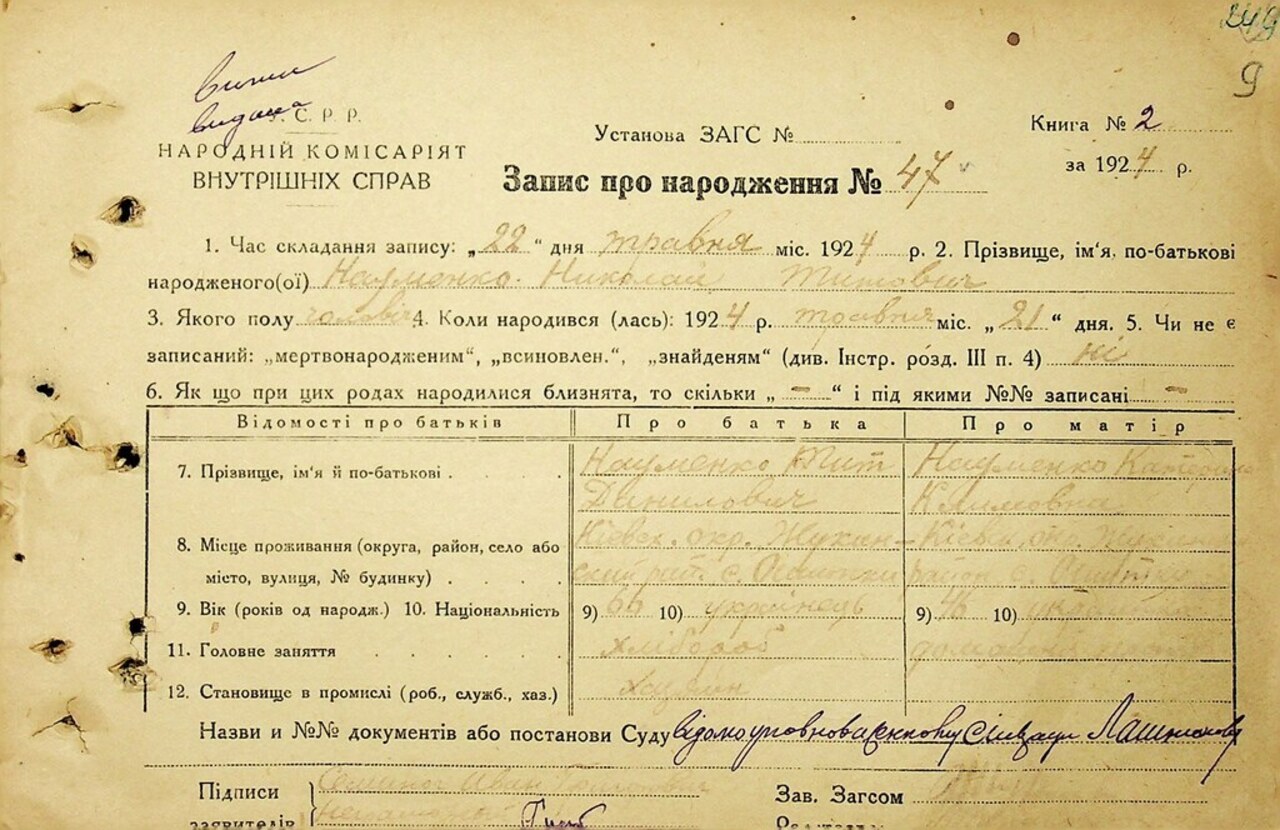 249
9
видана
У. С. Р. Р.
НАРОДНІЙ КОМІСАРІЯТ
ВНУТРІШНІХ СПРАВ
Установа ЗАГС №
Запис про народження № 47
Книга № 2
за 1924 р.
1. Час складання запису: „22“ дня травня міс. 1924 р. 2. Прізвище, ім'я, по-батькові
народженого(ої) Науменко Николай Титович
3. Якого полу чоловіч 4. Коли народився (лась): 1924 р. травня міс. „21“ дня. 5. Чи не є
записаний: „мертвонародженим“, „всиновлен.“, „знайденям“ (див. Інстр. розд. III п. 4) ні
6. Як що при цих родах народилися близнята, то скільки „ — “ і під якими №№ записані —
Відомості про батьків Про батька Про матір
7. Прізвище, ім'я й по-батькові Науменко Тит Науменко Катерина
Данилович Климовна
8. Місце проживання (округа, район, село або Київск. окр. Жукин- Київск. окр.
місто, вулиця, № будинку) ский рай. с. район с.
9. Вік (років од народж.) 10. Національність 9) 66 10) українець 9) 46 10)
11. Головне заняття хлібороб
12. Становище в промислі (роб., служб., хаз.) хазяин
Назви и №№ документів або постанови Суду
Підписи Иван
Зав. Загсом
заявителів